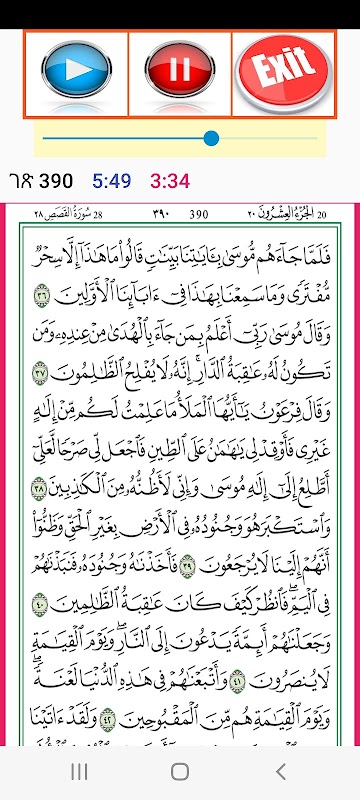 Exit
ገጽ 390 5:49 3:34
٢٨ سُورَةُ القَصَصِ 28 ٣٩٠ 390 ٢٠ الجُزْءُ العِشْرُون 20
فَلَمَّا جَآءَهُم مُّوسَىٰ بِـَٔايَٰتِنَا بَيِّنَٰتٍ قَالُوا۟ مَا هَٰذَآ إِلَّا سِحْرٌ
مُّفْتَرًى وَمَا سَمِعْنَا بِهَٰذَا فِىٓ ءَابَآئِنَا ٱلْأَوَّلِينَ ٣٦
وَقَالَ مُوسَىٰ رَبِّىٓ أَعْلَمُ بِمَن جَآءَ بِٱلْهُدَىٰ مِنْ عِندِهِۦ وَمَن
تَكُونُ لَهُۥ عَٰقِبَةُ ٱلدَّارِ ۖ إِنَّهُۥ لَا يُفْلِحُ ٱلظَّٰلِمُونَ ٣٧
وَقَالَ فِرْعَوْنُ يَٰٓأَيُّهَا ٱلْمَلَأُ مَا عَلِمْتُ لَكُم مِّنْ إِلَٰهٍ
غَيْرِى فَأَوْقِدْ لِى يَٰهَٰمَٰنُ عَلَى ٱلطِّينِ فَٱجْعَل لِّى صَرْحًا لَّعَلِّىٓ
أَطَّلِعُ إِلَىٰٓ إِلَٰهِ مُوسَىٰ وَإِنِّى لَأَظُنُّهُۥ مِنَ ٱلْكَٰذِبِينَ ٣٨
وَٱسْتَكْبَرَ هُوَ وَجُنُودُهُۥ فِى ٱلْأَرْضِ بِغَيْرِ ٱلْحَقِّ وَظَنُّوٓا۟
أَنَّهُمْ إِلَيْنَا لَا يُرْجَعُونَ ٣٩ فَأَخَذْنَٰهُ وَجُنُودَهُۥ فَنَبَذْنَٰهُمْ
فِى ٱلْيَمِّ ۖ فَٱنظُرْ كَيْفَ كَانَ عَٰقِبَةُ ٱلظَّٰلِمِينَ ٤٠
وَجَعَلْنَٰهُمْ أَئِمَّةً يَدْعُونَ إِلَى ٱلنَّارِ ۖ وَيَوْمَ ٱلْقِيَٰمَةِ
لَا يُنصَرُونَ ٤١ وَأَتْبَعْنَٰهُمْ فِى هَٰذِهِ ٱلدُّنْيَا لَعْنَةً ۖ
وَيَوْمَ ٱلْقِيَٰمَةِ هُم مِّنَ ٱلْمَقْبُوحِينَ ٤٢ وَلَقَدْ ءَاتَيْنَا